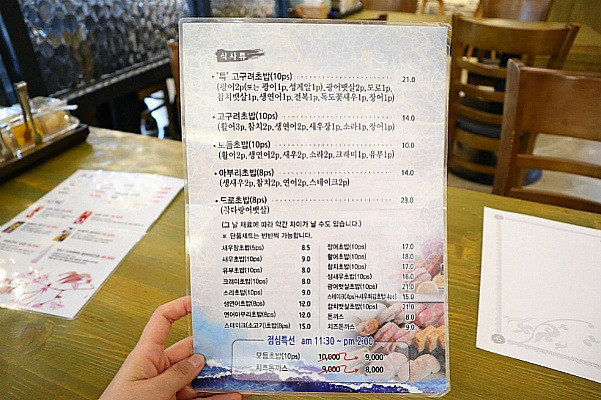 식사류
• "특" 고구려초밥(10ps) 21.0
(광어2p(또는 광어1p, 성게알1p), 광어뱃살2p, 도로1p,
참치뱃살1p, 생연어1p, 전복1p, 독도꽃새우1p, 장어1p)
• 고구려초밥(10ps) 14.0
(활어3p, 참치2p, 생연어2p, 새우장1p, 소라1p, 장어1p)
• 모듬초밥(10ps) 10.0
(활어2p, 생연어2p, 새우2p, 소라2p, 크래미1p, 유부1p)
• 아부리초밥(8ps) 14.0
(생새우2p, 참치2p, 연어2p, 스테이크2p)
• 도로초밥(8ps) 23.0
(참다랑어뱃살)
(그 날 재료에 따라 약간 차이가 날 수도 있습니다.)
* 단품세트는 반반씩 가능합니다.
새우장초밥(5ps) 8.5
새우초밥(10ps) 9.0
유부초밥(10ps) 8.0
크래미초밥(10ps) 8.0
소라초밥(10ps) 9.0
생연어초밥(8ps) 12.0
연어아부리초밥(8ps) 12.0
스테이크(소고기)초밥(8ps) 15.0
장어초밥(10ps) 17.0
활어초밥(10ps) 18.0
참치초밥(10ps) 17.0
생새우초밥(10ps) 16.0
광어뱃살초밥(10ps) 21.0
15.0
참치뱃살초밥(10ps) 21.0
돈까스 8.0
치즈돈까스 9.0
점심특선 am 11:30 ~ pm 2:00
모듬초밥(10ps) 10,000 9,000
치즈돈까스 9,000 8,000